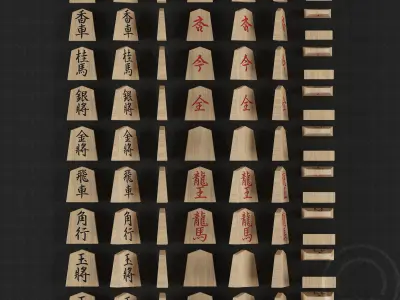 香車 香車 杏 杏
桂馬 桂馬 今 今
銀將 銀將 全 全
金將 金將
飛車 飛車 龍王 龍王
角行 角行 龍馬 龍馬
玉將 玉將